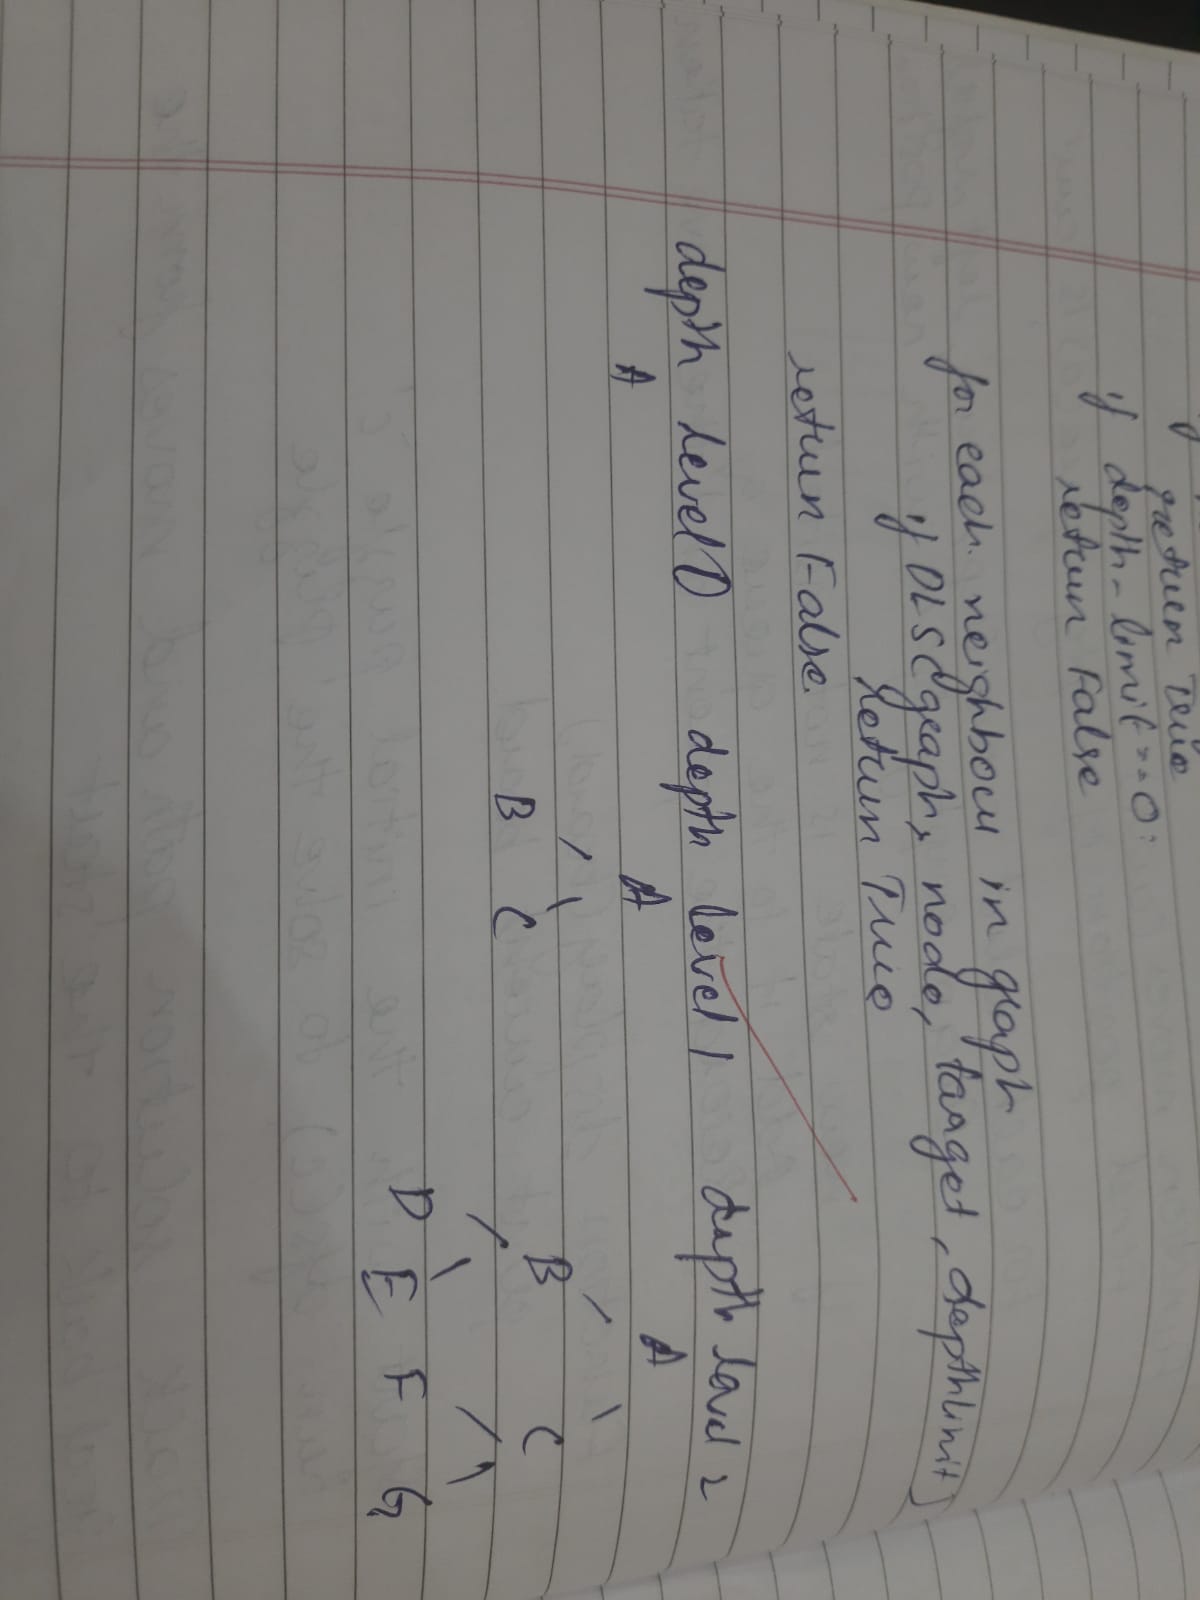 return True
if depth-limit == 0:
return False
for each neighbour in graph
if DLS(graph, node, target, depthlimit)
return True
return False.
depth level 0 depth level 1 depth level 2
A A A
B C B C
D E F G